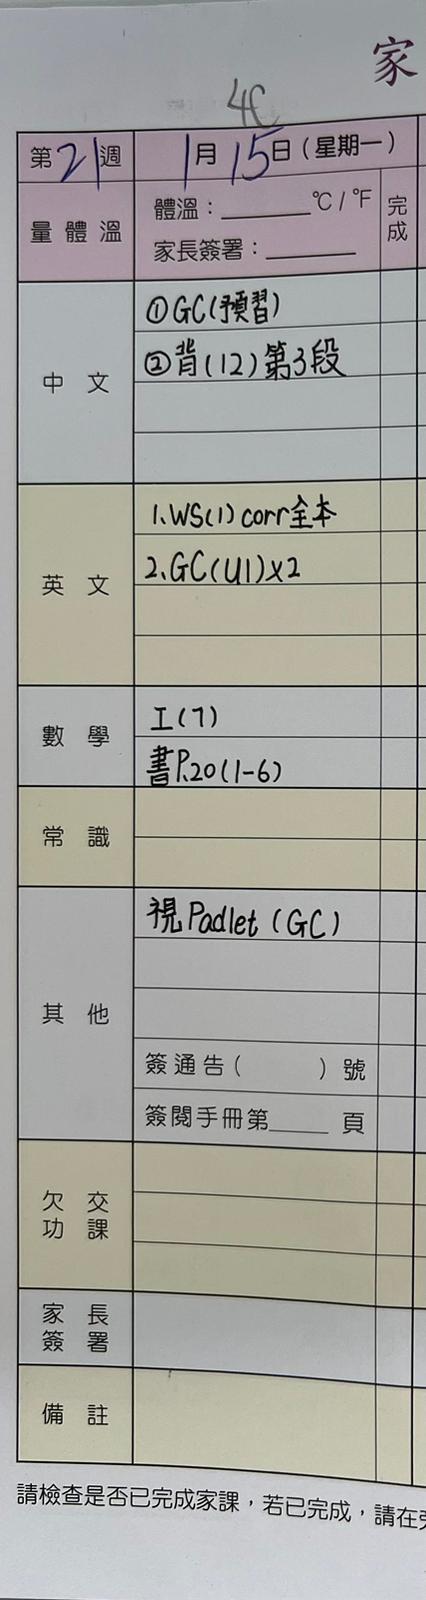 家
4C
第21週 1月15日(星期一)
量體溫 體溫：______℃/℉ 完成
家長簽署：______
中文 ①GC(預習)
②背(12)第3段
英文 1.WS(1) corr全本
2.GC(U1)x2
數學 工(7)
書P.20(1-6)
常識
其他 視Padlet (GC)
簽通告( )號
簽閱手冊第____頁
欠交功課
家長簽署
備註
請檢查是否已完成家課，若已完成，請在